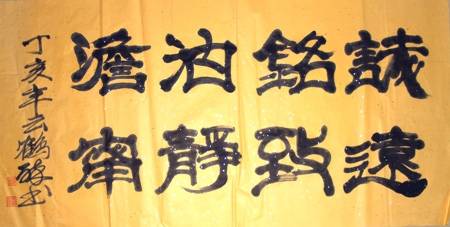 澹泊銘誠
甯靜致遠
丁亥年云鶴书